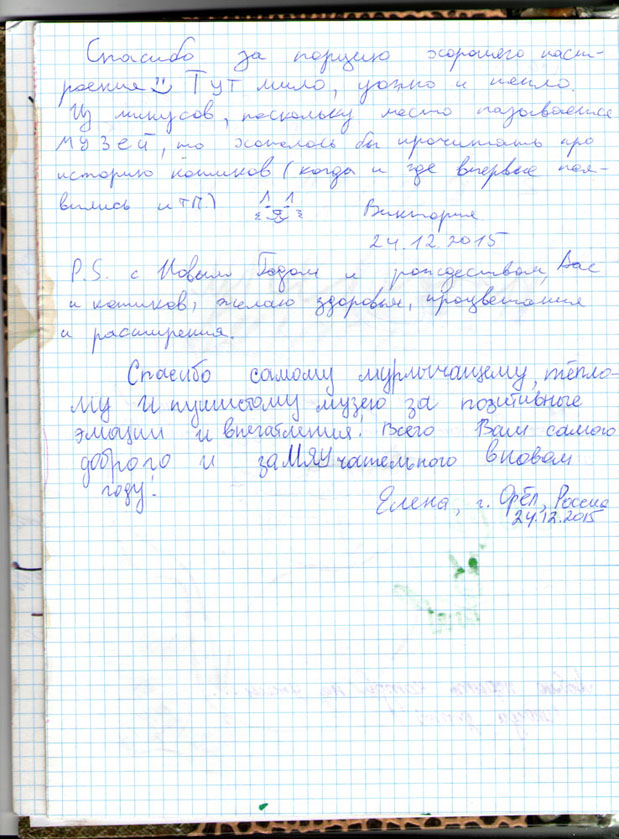 Спасибо за порцию хорошего наст-
роения Тут мило, уютно и тепло.
Из минусов, поскольку место называется
музей, то хотелось бы прочитать про
историю котиков (когда и где впервые поя-
вились и тп)
Виктория
24.12.2015
P.S. с Новым Годом и рождеством, Вас
и котиков, желаю здоровья, процветания
и расширения.
Спасибо самому мурлычащему, тёпло-
му и пушистому музею за позитивные
эмоции и впечатления. Всего Вам самого
доброго и заМЯУчательного вновом
году!
Елена, г. Орёл, Россия
24.12.2015